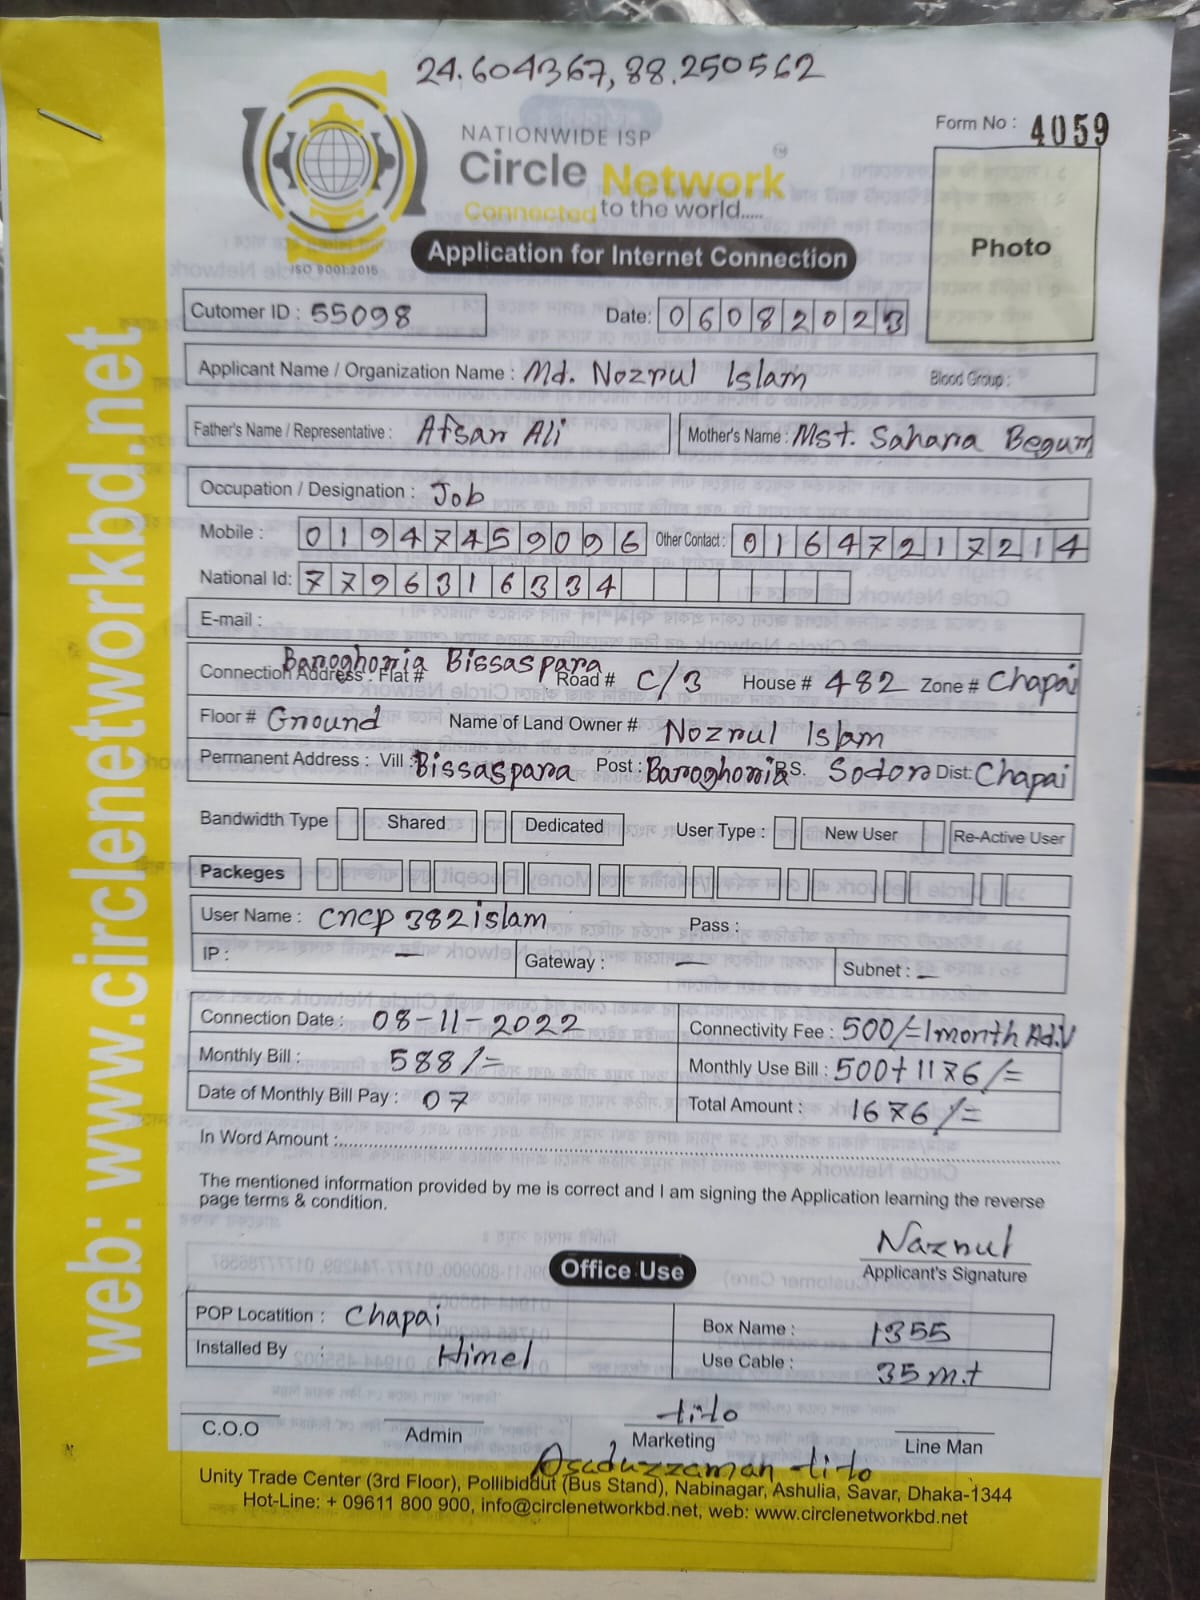 24.604367, 88.250562
NATIONWIDE ISP
Form No : 4059
Circle Network TM
Connected to the world.....
ISO 9001:2015
Application for Internet Connection
Photo
Cutomer ID : 55098 Date: 06082023
Applicant Name / Organization Name : Md. Nozrul Islam Blood Group :
Father's Name / Representative : Afsar Ali Mother's Name : Mst. Sahara Begum
Occupation / Designation : Job
Mobile : 01947459096 Other Contact : 01647217214
National Id: 7796316334
E-mail :
Baroghoria Bissaspara
Connection Address : Flat # Road # C/3 House # 482 Zone # Chapai
Floor # Ground Name of Land Owner # Nozrul Islam
Permanent Address : Vill : Bissaspara Post : Baroghoria P.S. Sodor Dist: Chapai
Bandwidth Type Shared Dedicated User Type : New User Re-Active User
Packeges
User Name : cncp382islam Pass :
IP : — Gateway : — Subnet : —
Connection Date : 08-11-2022 Connectivity Fee : 500/= 1month Ad.V
Monthly Bill : 588/= Monthly Use Bill : 500+1176/=
Date of Monthly Bill Pay : 07 Total Amount : 1676/=
In Word Amount :
The mentioned information provided by me is correct and I am signing the Application learning the reverse
page terms & condition.
Naznul
Applicant's Signature
Office Use
POP Locatition : Chapai Box Name : 1355
Installed By : Himel Use Cable : 35 m.t
tito
C.O.O Admin Marketing Line Man
Asaduzzaman tito
Unity Trade Center (3rd Floor), Pollibiddut (Bus Stand), Nabinagar, Ashulia, Savar, Dhaka-1344
Hot-Line: + 09611 800 900, info@circlenetworkbd.net, web: www.circlenetworkbd.net
web: www.circlenetworkbd.net